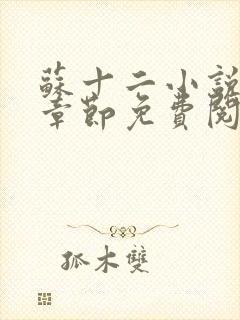 蘇十二小說
章節免費閱
孤木雙